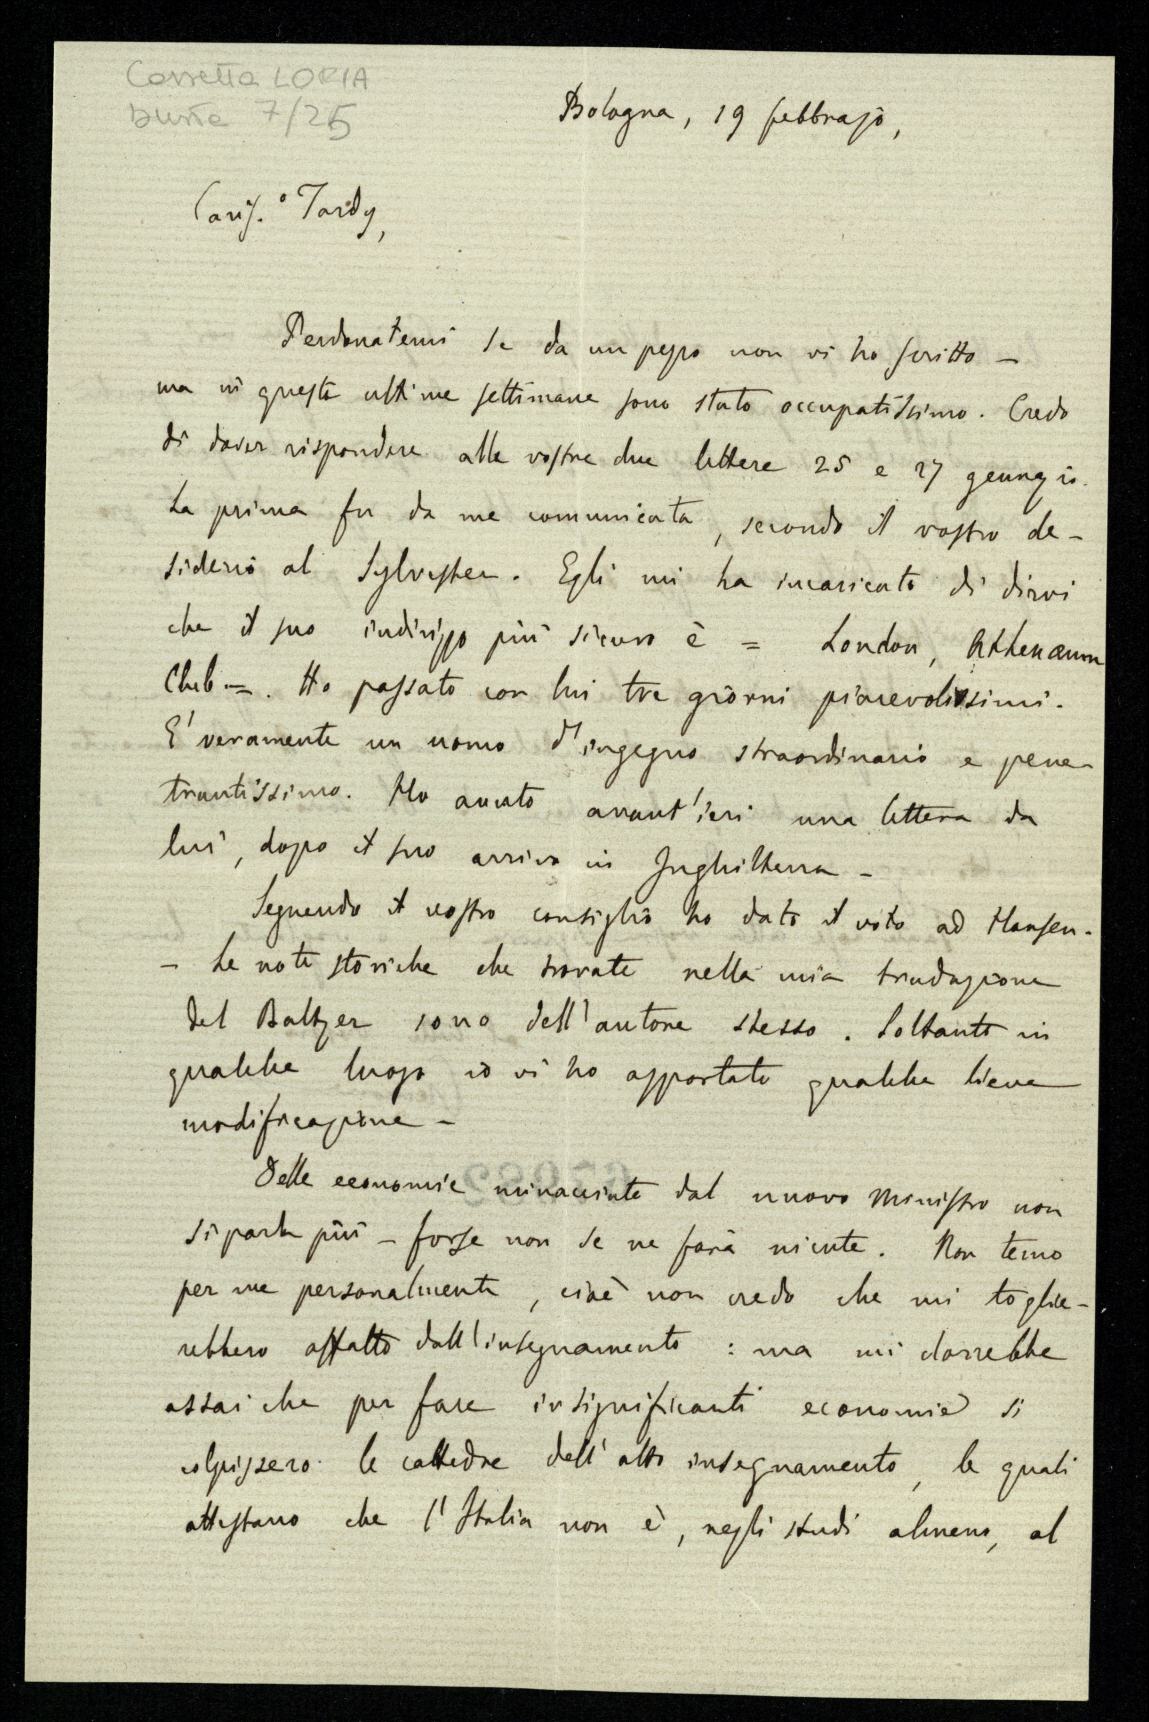 Cassetta LORIA
busta 7/25
Bologna, 19 febbrajo,
Cariss.º Tardy,
Perdonatemi se da un pezzo non vi ho scritto –
ma in queste ultime settimane sono stato occupatissimo. Credo
di dover rispondere alle vostre due lettere 25 e 27 gennajo.
La prima fu da me comunicata, secondo il vostro de-
siderio al Sylvester. Egli mi ha incaricato di dirvi
che il suo indirizzo più sicuro è = London, Athenæum
Club =. Ho passato con lui tre giorni piacevolissimi.
E' veramente un uomo d'ingegno straordinario e pene-
trantissimo. Ho avuto avant'ieri una lettera da
lui, dopo il suo arrivo in Inghilterra –
Seguendo il vostro consiglio ho dato il voto ad Hansen.
– Le note storiche che trovate nella mia traduzione
del Baltzer sono dell'autore stesso. Soltanto in
qualche luogo io vi ho apportato qualche lieve
modificazione –
Delle economie minacciate dal nuovo Ministro non
si parla più – forse non se ne farà niente. Non temo
per me personalmente, cioè non credo che mi toglie-
rebbero affatto dall'insegnamento : ma mi dorrebbe
assai che per fare insignificanti economie si
colpissero le cattedre dell'alto insegnamento, le quali
attestano che l'Italia non è, negli studi almeno, al